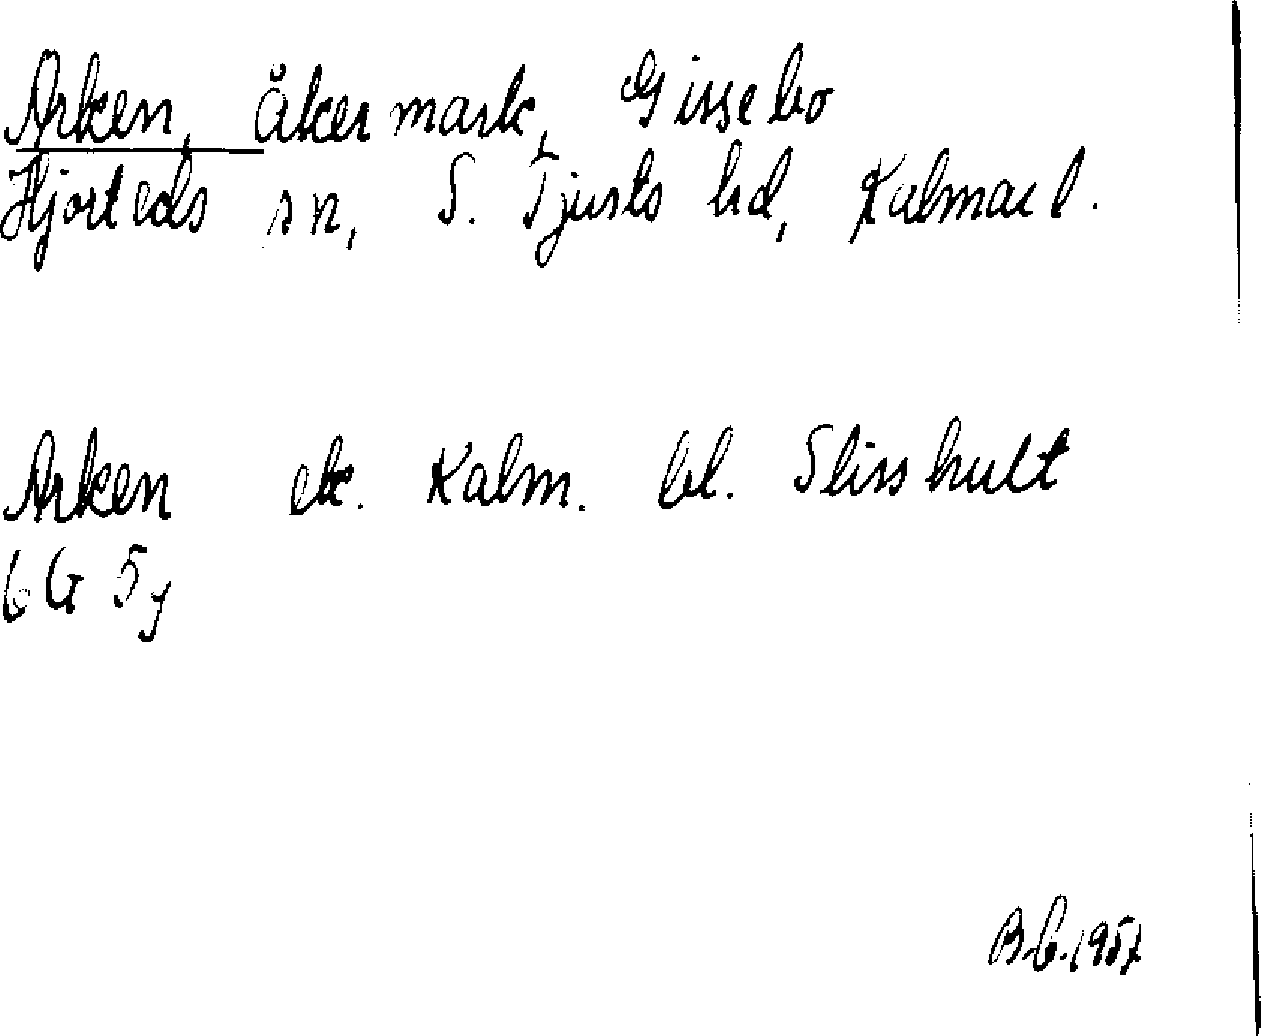 Arken, åkermark, Gissebo
Hjorteds sn, S. Tjusts hd, Kalmar l.
Arken ek. Kalm. bl. Slisshult
6G 5j
B.G. 1957